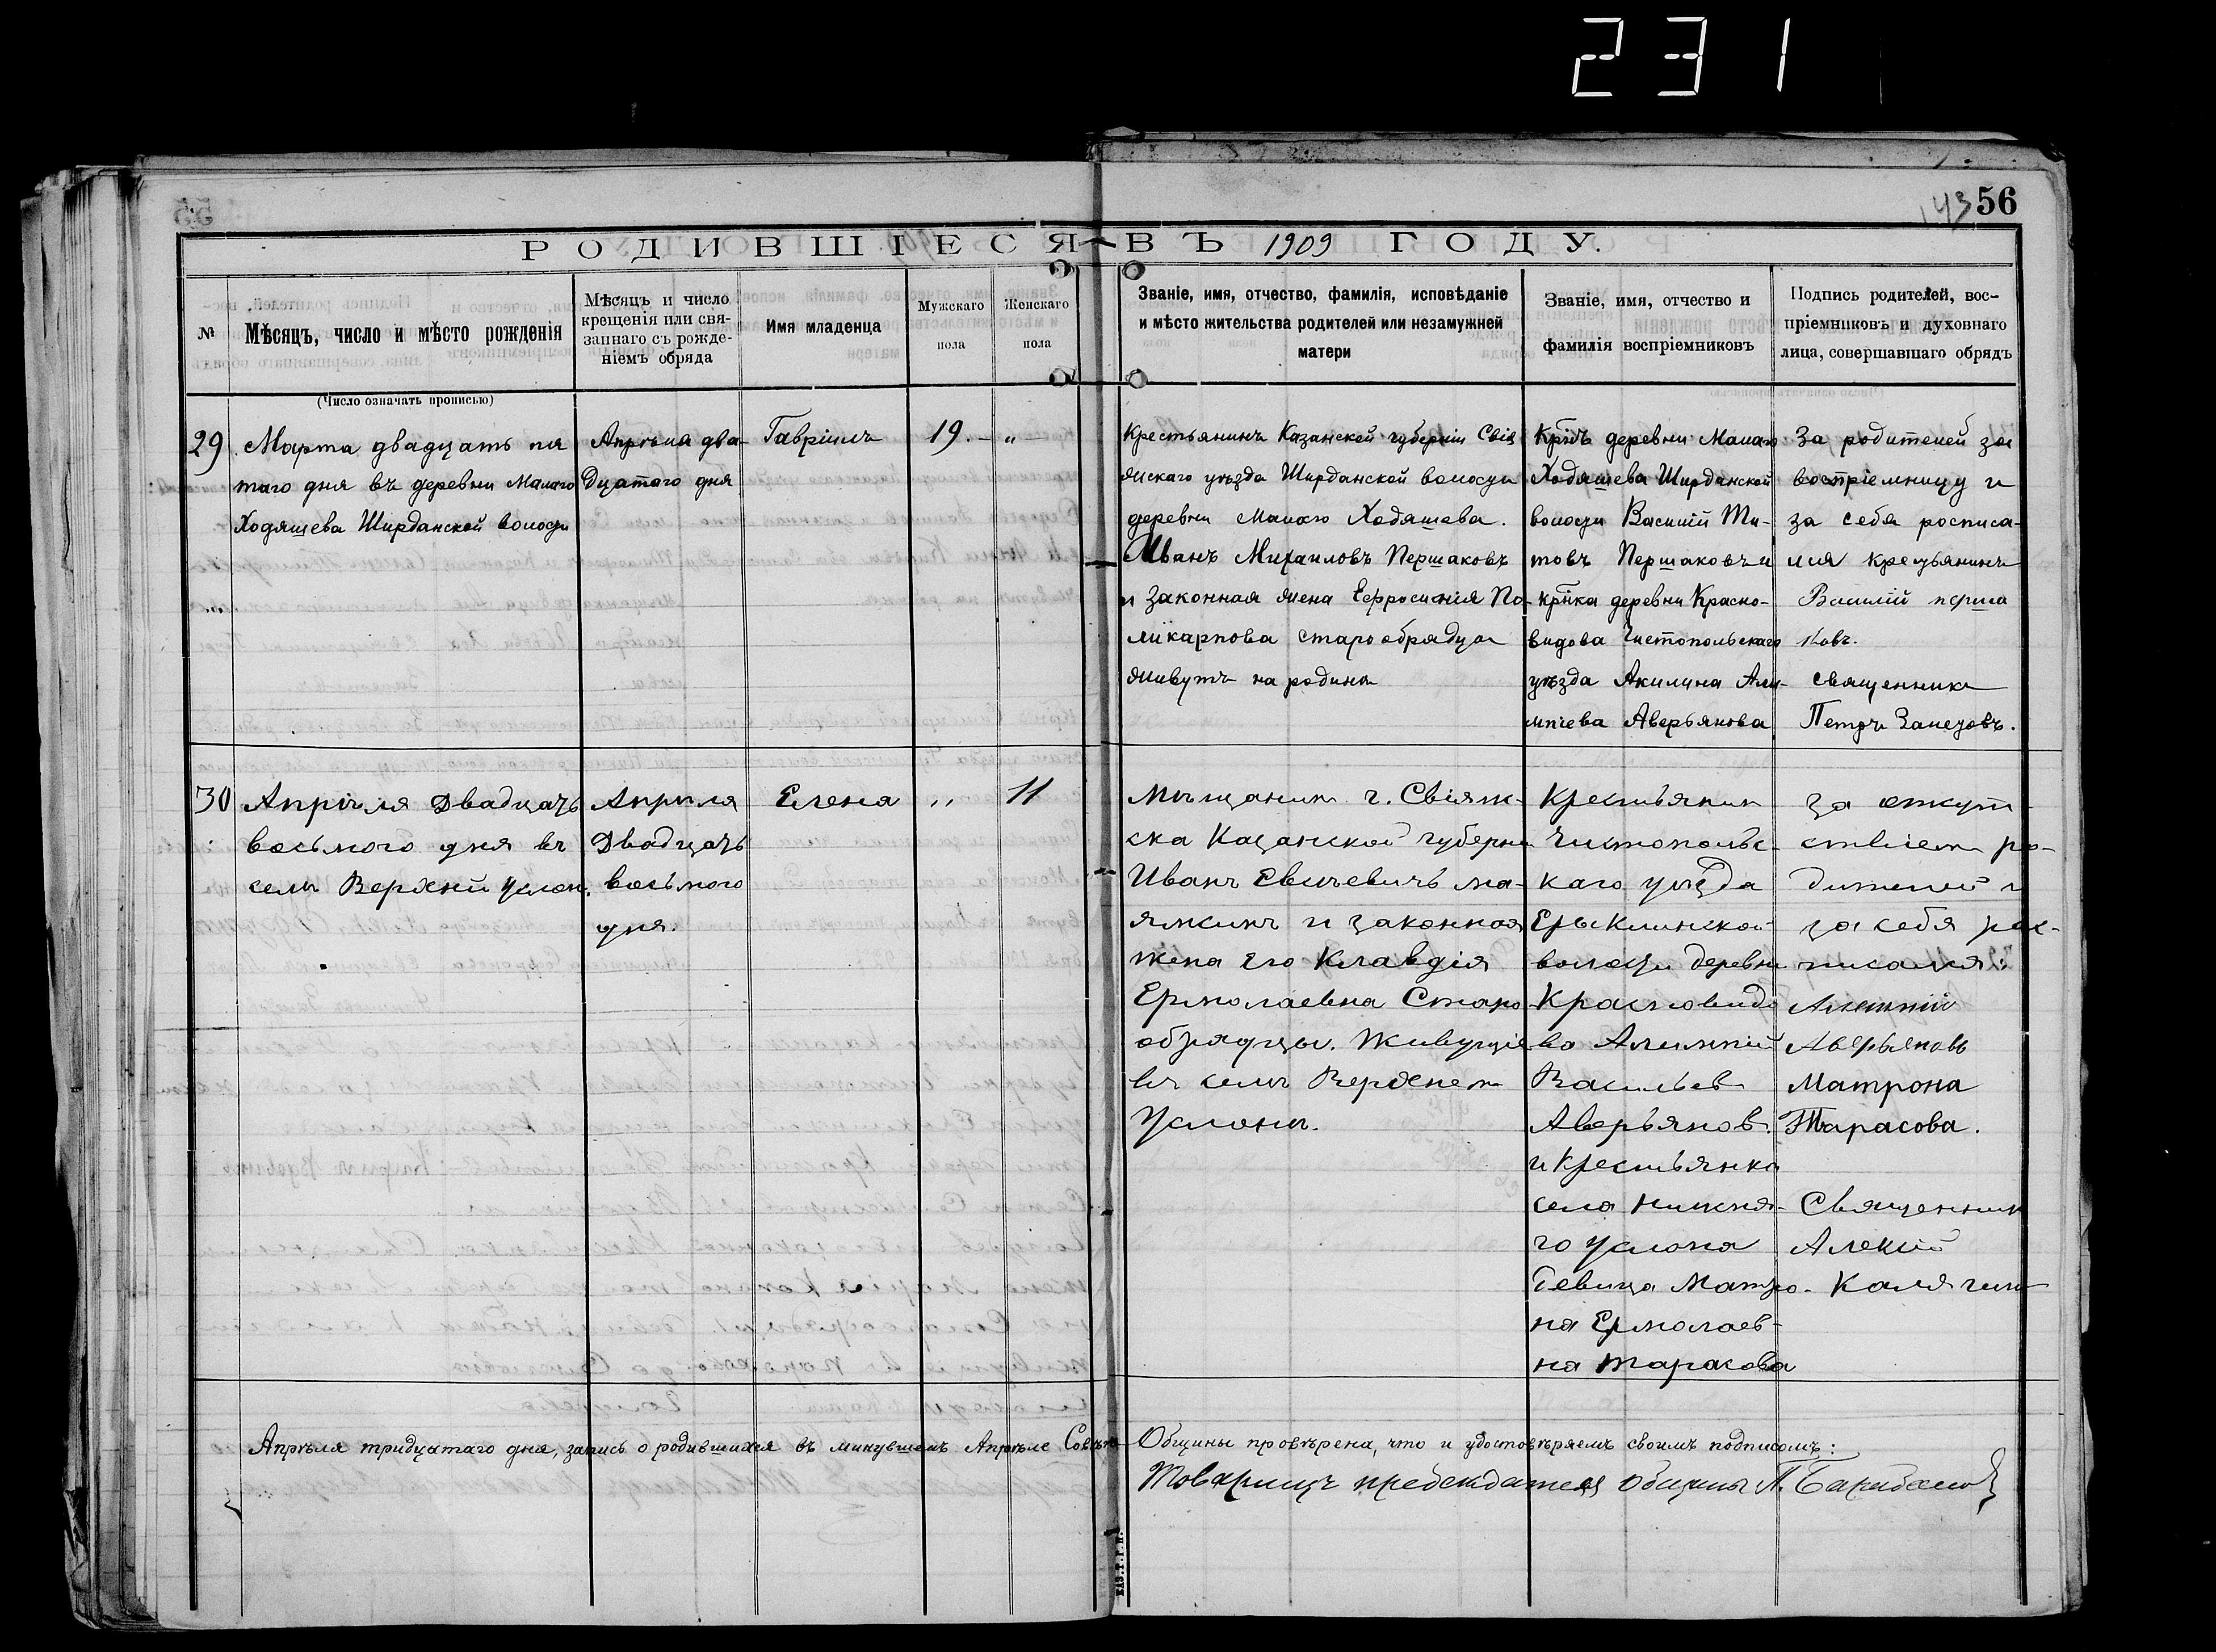 231
143 56
РОДИВШІЕСЯ ВЪ 1909 ГОДУ.
№
Мѣсяцъ, число и мѣсто рожденія
(Число означать прописью)
Мѣсяцъ и число
крещенія или свя-
заннаго съ рожде-
ніемъ обряда
Имя младенца
Мужскаго
пола
Женскаго
пола
Званіе, имя, отчество, фамилія, исповѣданіе
и мѣсто жительства родителей или незамужней
матери
Званіе, имя, отчество и
фамилія воспріемниковъ
Подпись родителей, вос-
пріемниковъ и духовнаго
лица, совершавшаго обрядъ
29
Марта двадцать пя
таго дня въ деревни Малаго
Ходяшева Ширданской волости
Апрѣля два-
дцатаго дня
Гавріилъ
19. — „ —
Крестьянинъ Казанской губерніи Свія
жскаго уѣзда Ширданской волости
деревни Малаго Ходяшева.
Иванъ Михаиловъ Першаковъ
и законная жена Ефросинія По-
ликарпова старообрядцы
живутъ на родинѣ
Крнъ деревни Малаго
Ходяшева Ширданской
волости Василій Ти-
товъ Першаковъ и
крнка деревни Красно-
видова Чистопольскаго
уѣзда Акилина Али-
мпіева Аверьянова
За родителей за
воспріемницу и
за себя росписа-
лся крестьянинъ
Василій перша
ковъ.
священникъ
Петръ Залетовъ.
30
Апрѣля двадцать
восьмого дня въ
селѣ Верхній Услон.
Апрѣля
двадцать
восьмого
дня.
Елена
„ 11
Мѣщанин г. Свіяж-
ска Казанской губерни
Иванъ Евичевичъ ма-
яжкинъ и законная
жена его Клавдія
Ермолаевна Старо
обрядцы. Живущіе
въ селѣ Верхнем
Услонѣ.
Крестьянин
Чистопольс-
каго уѣзда
Ерыклинской
волости деревни
Красновидо
во Алимпій
Васильев
Аверьянов.
и Крестьянка
села Нижня-
го Услона
девица Матро-
на Ермолаев-
на Тарасова
за отсут-
ствіем ро-
дителей и
за себя рос-
писался:
Алимпій
Аверьяновъ
Матрона
Тарасова.
Священник
Алексій
Калягин
Апрѣля тридцатаго дня, запись о родившихся въ минувшемъ Апрѣле Совѣтомъ Общины провѣрена, что и удостовѣряемъ своимъ подписомъ:
Товарищъ председателя Общины П.